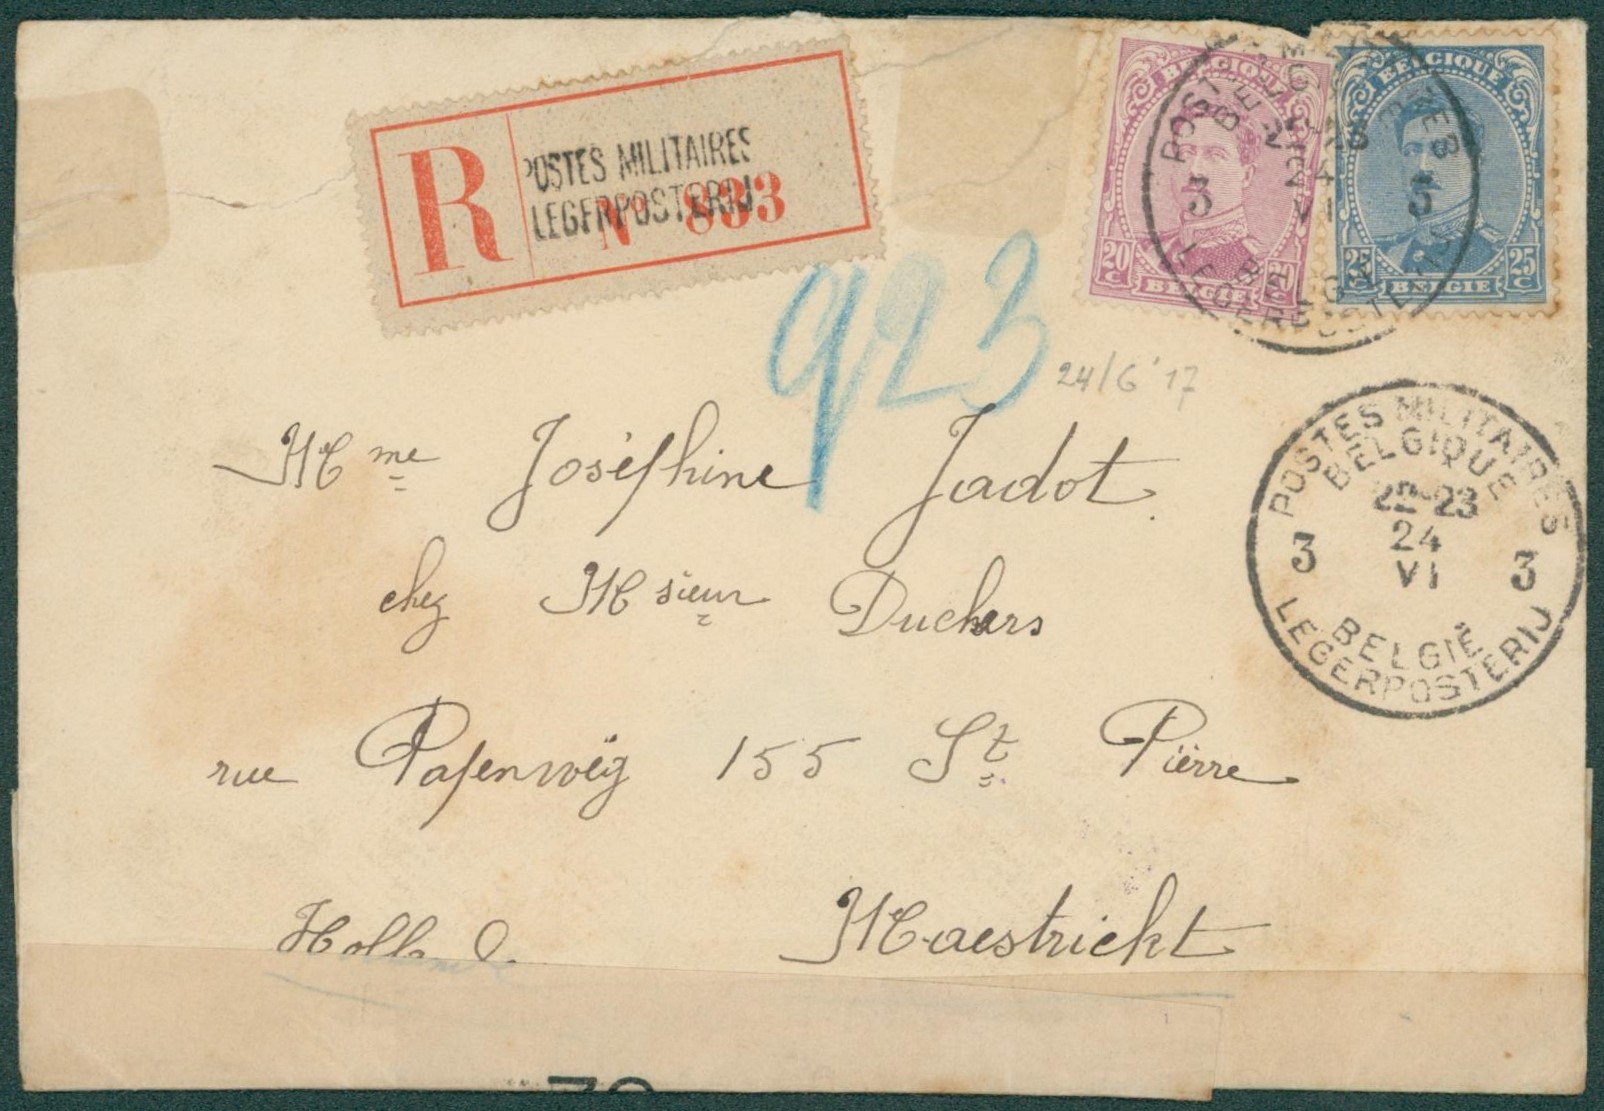 R
POSTES MILITAIRES
LEGERPOSTERIJ
Nº 893
BELGIQUE
20 C
20 C
BELGIË
BELGIQUE
25 C
25 C
BELGIË
3 3
923
24/6 '17
POSTES MILITAIRES
BELGIQUE
22-23
24
VI
3 3
BELGIË
LEGERPOSTERIJ
Mme Joséphine Jadot.
chez Msieur Duchers
rue Papenwëg 155 St Piërre
Hollande Maestricht